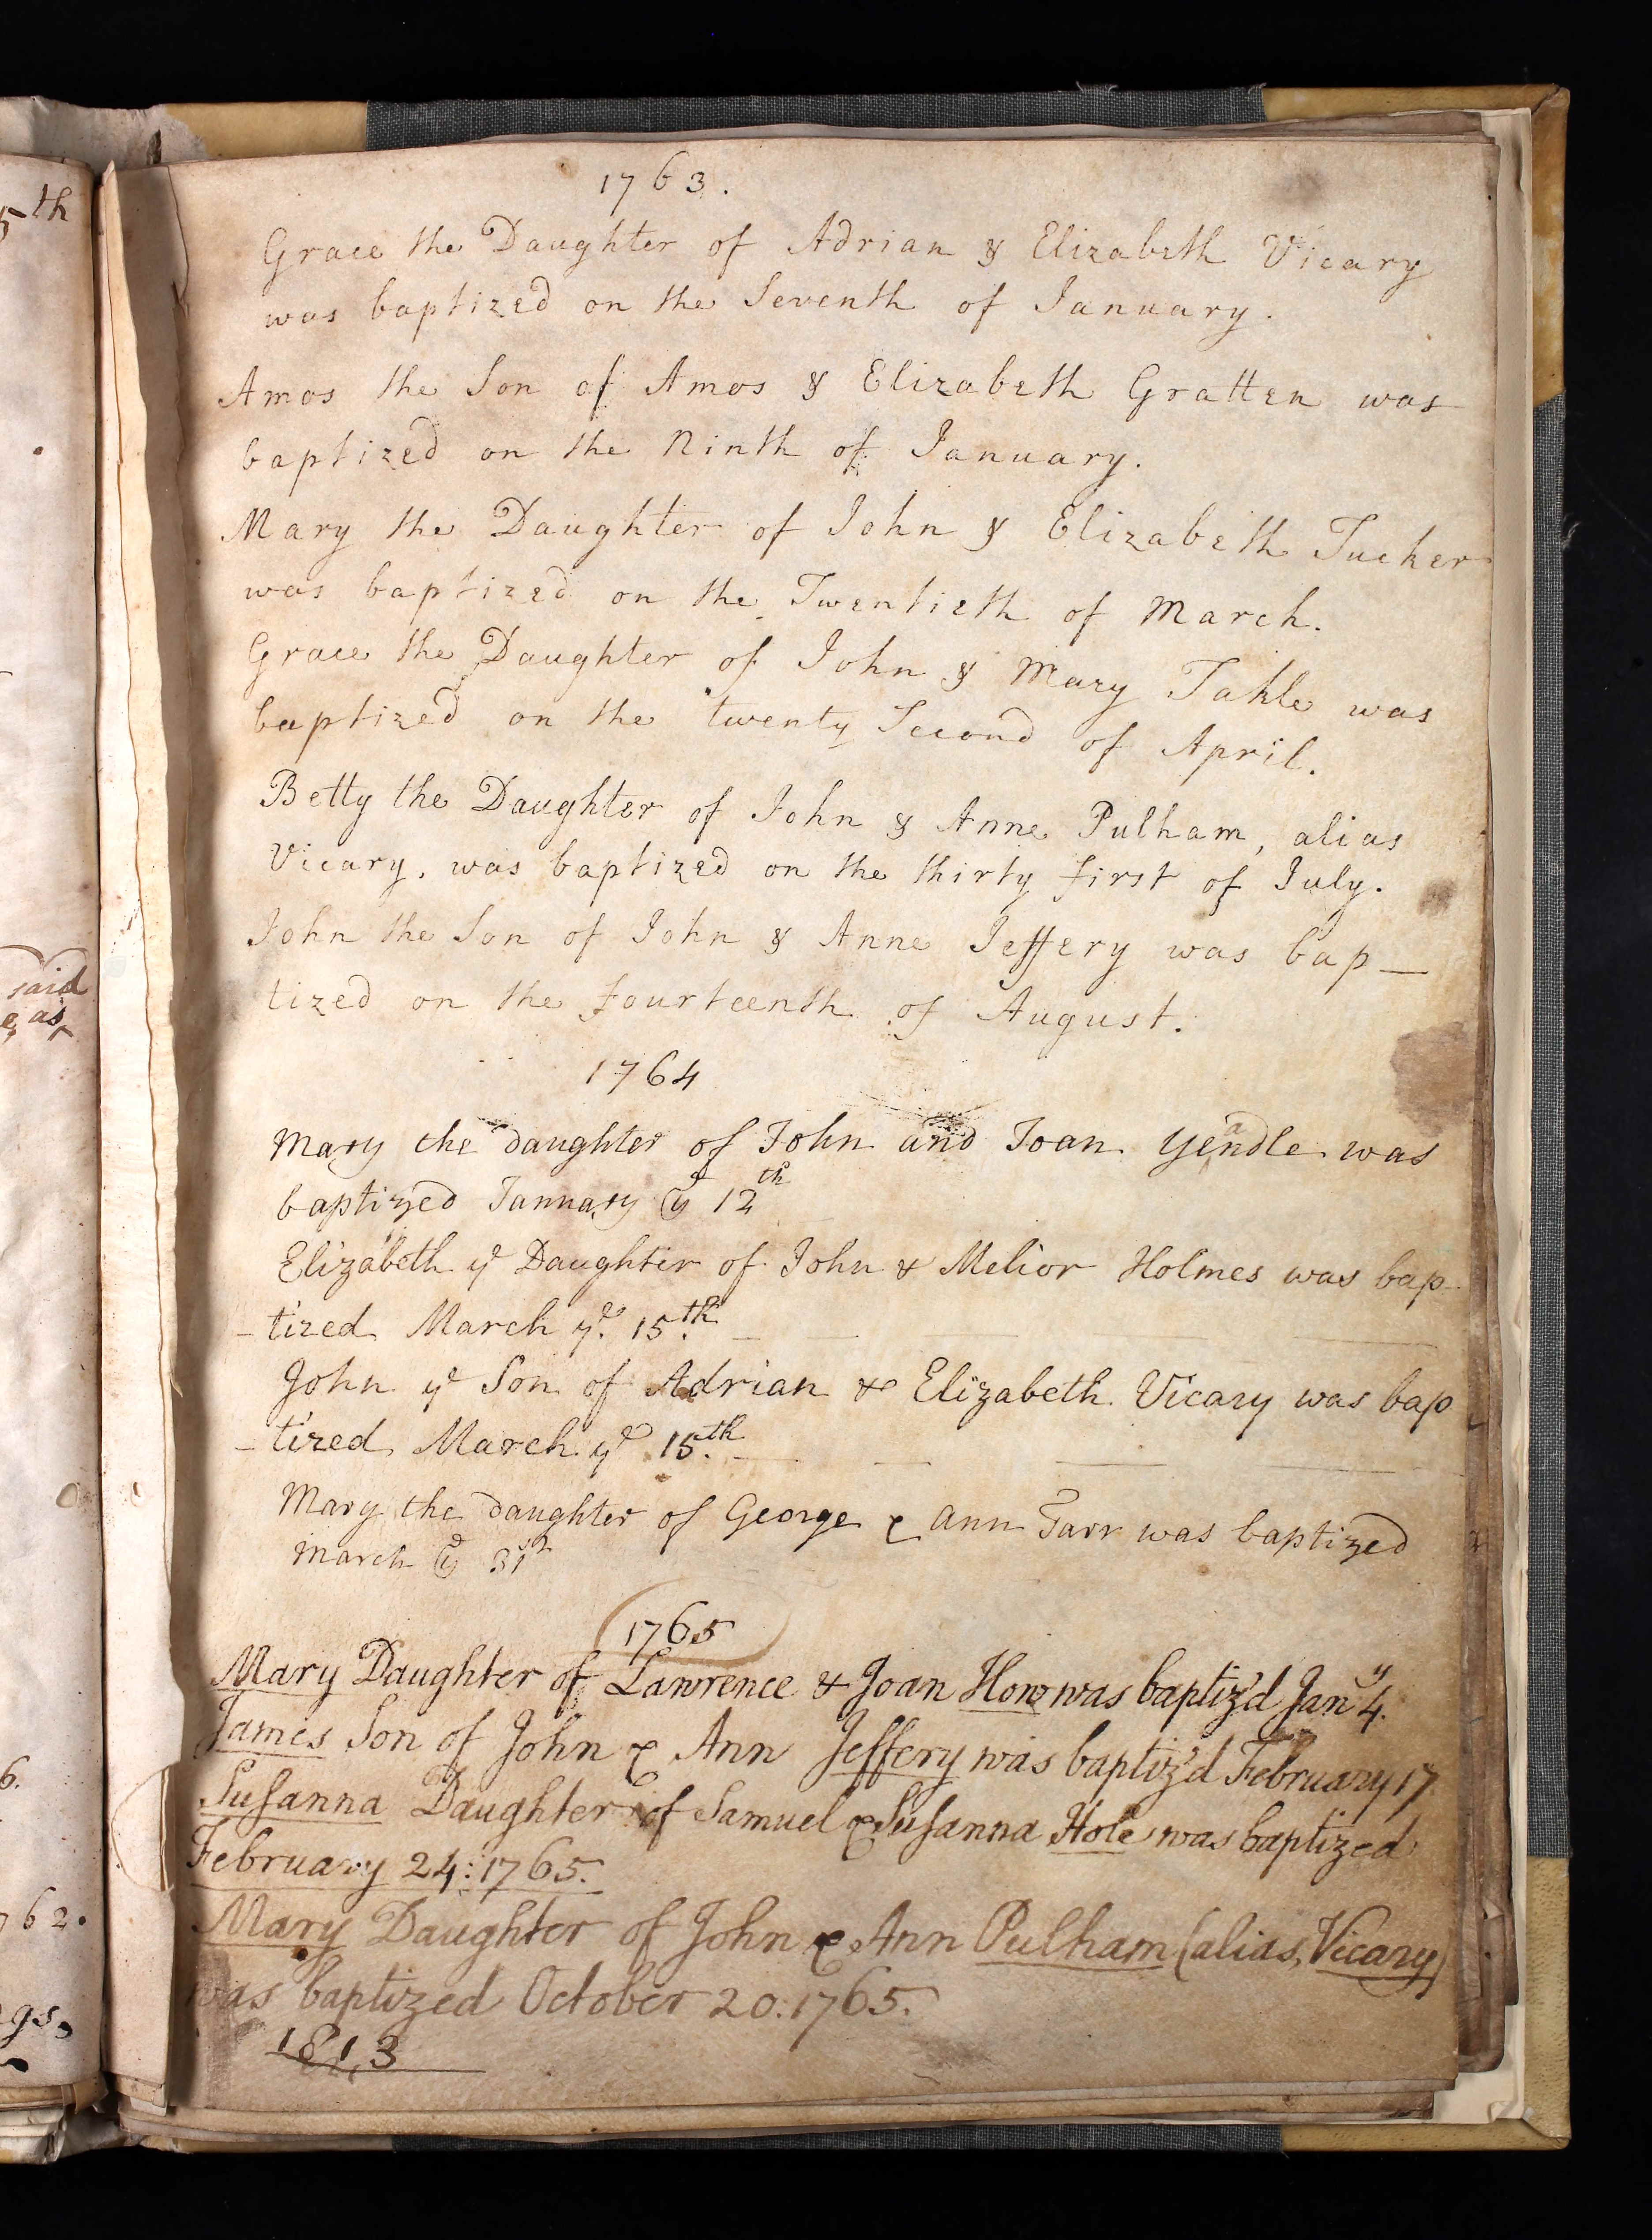 5th
said
e as
6.
762.
gs.
1763.
Grace the Daughter of Adrian & Elizabeth Vicary
was baptized on the Seventh of January.
Amos the Son of Amos & Elizabeth Gratten was
baptized on the Ninth of January.
Mary the Daughter of John & Elizabeth Tucker
was baptized on the Twentieth of March.
Grace the Daughter of John & Mary Takle was
baptized on the twenty Second of April.
Betty the Daughter of John & Anne Pulham, alias
Vicary, was baptized on the thirty first of July.
John the Son of John & Anne Jeffery was bap—
tized on the fourteenth of August.
1764
Mary the daughter of John and Joan Yeandle was
baptized January ye 12th
Elizabeth ye Daughter of John & Melior Holmes was bap-
-tized March ye 15.th
John ye Son of Adrian & Elizabeth Vicary was bap
-tized March ye 15.th
Mary the daughter of George & Ann Tarr was baptized
March ye 31st
1765
Mary Daughter of Lawrence & Joan How was baptiz'd Jany 4.
James Son of John & Ann Jeffery was baptiz'd February 17
Susanna Daughter of Samuel & Susanna Hole was baptized
February 24: 1765.
Mary Daughter of John & Ann Pulham (alias, Vicary)
was baptized October 20: 1765.
1813